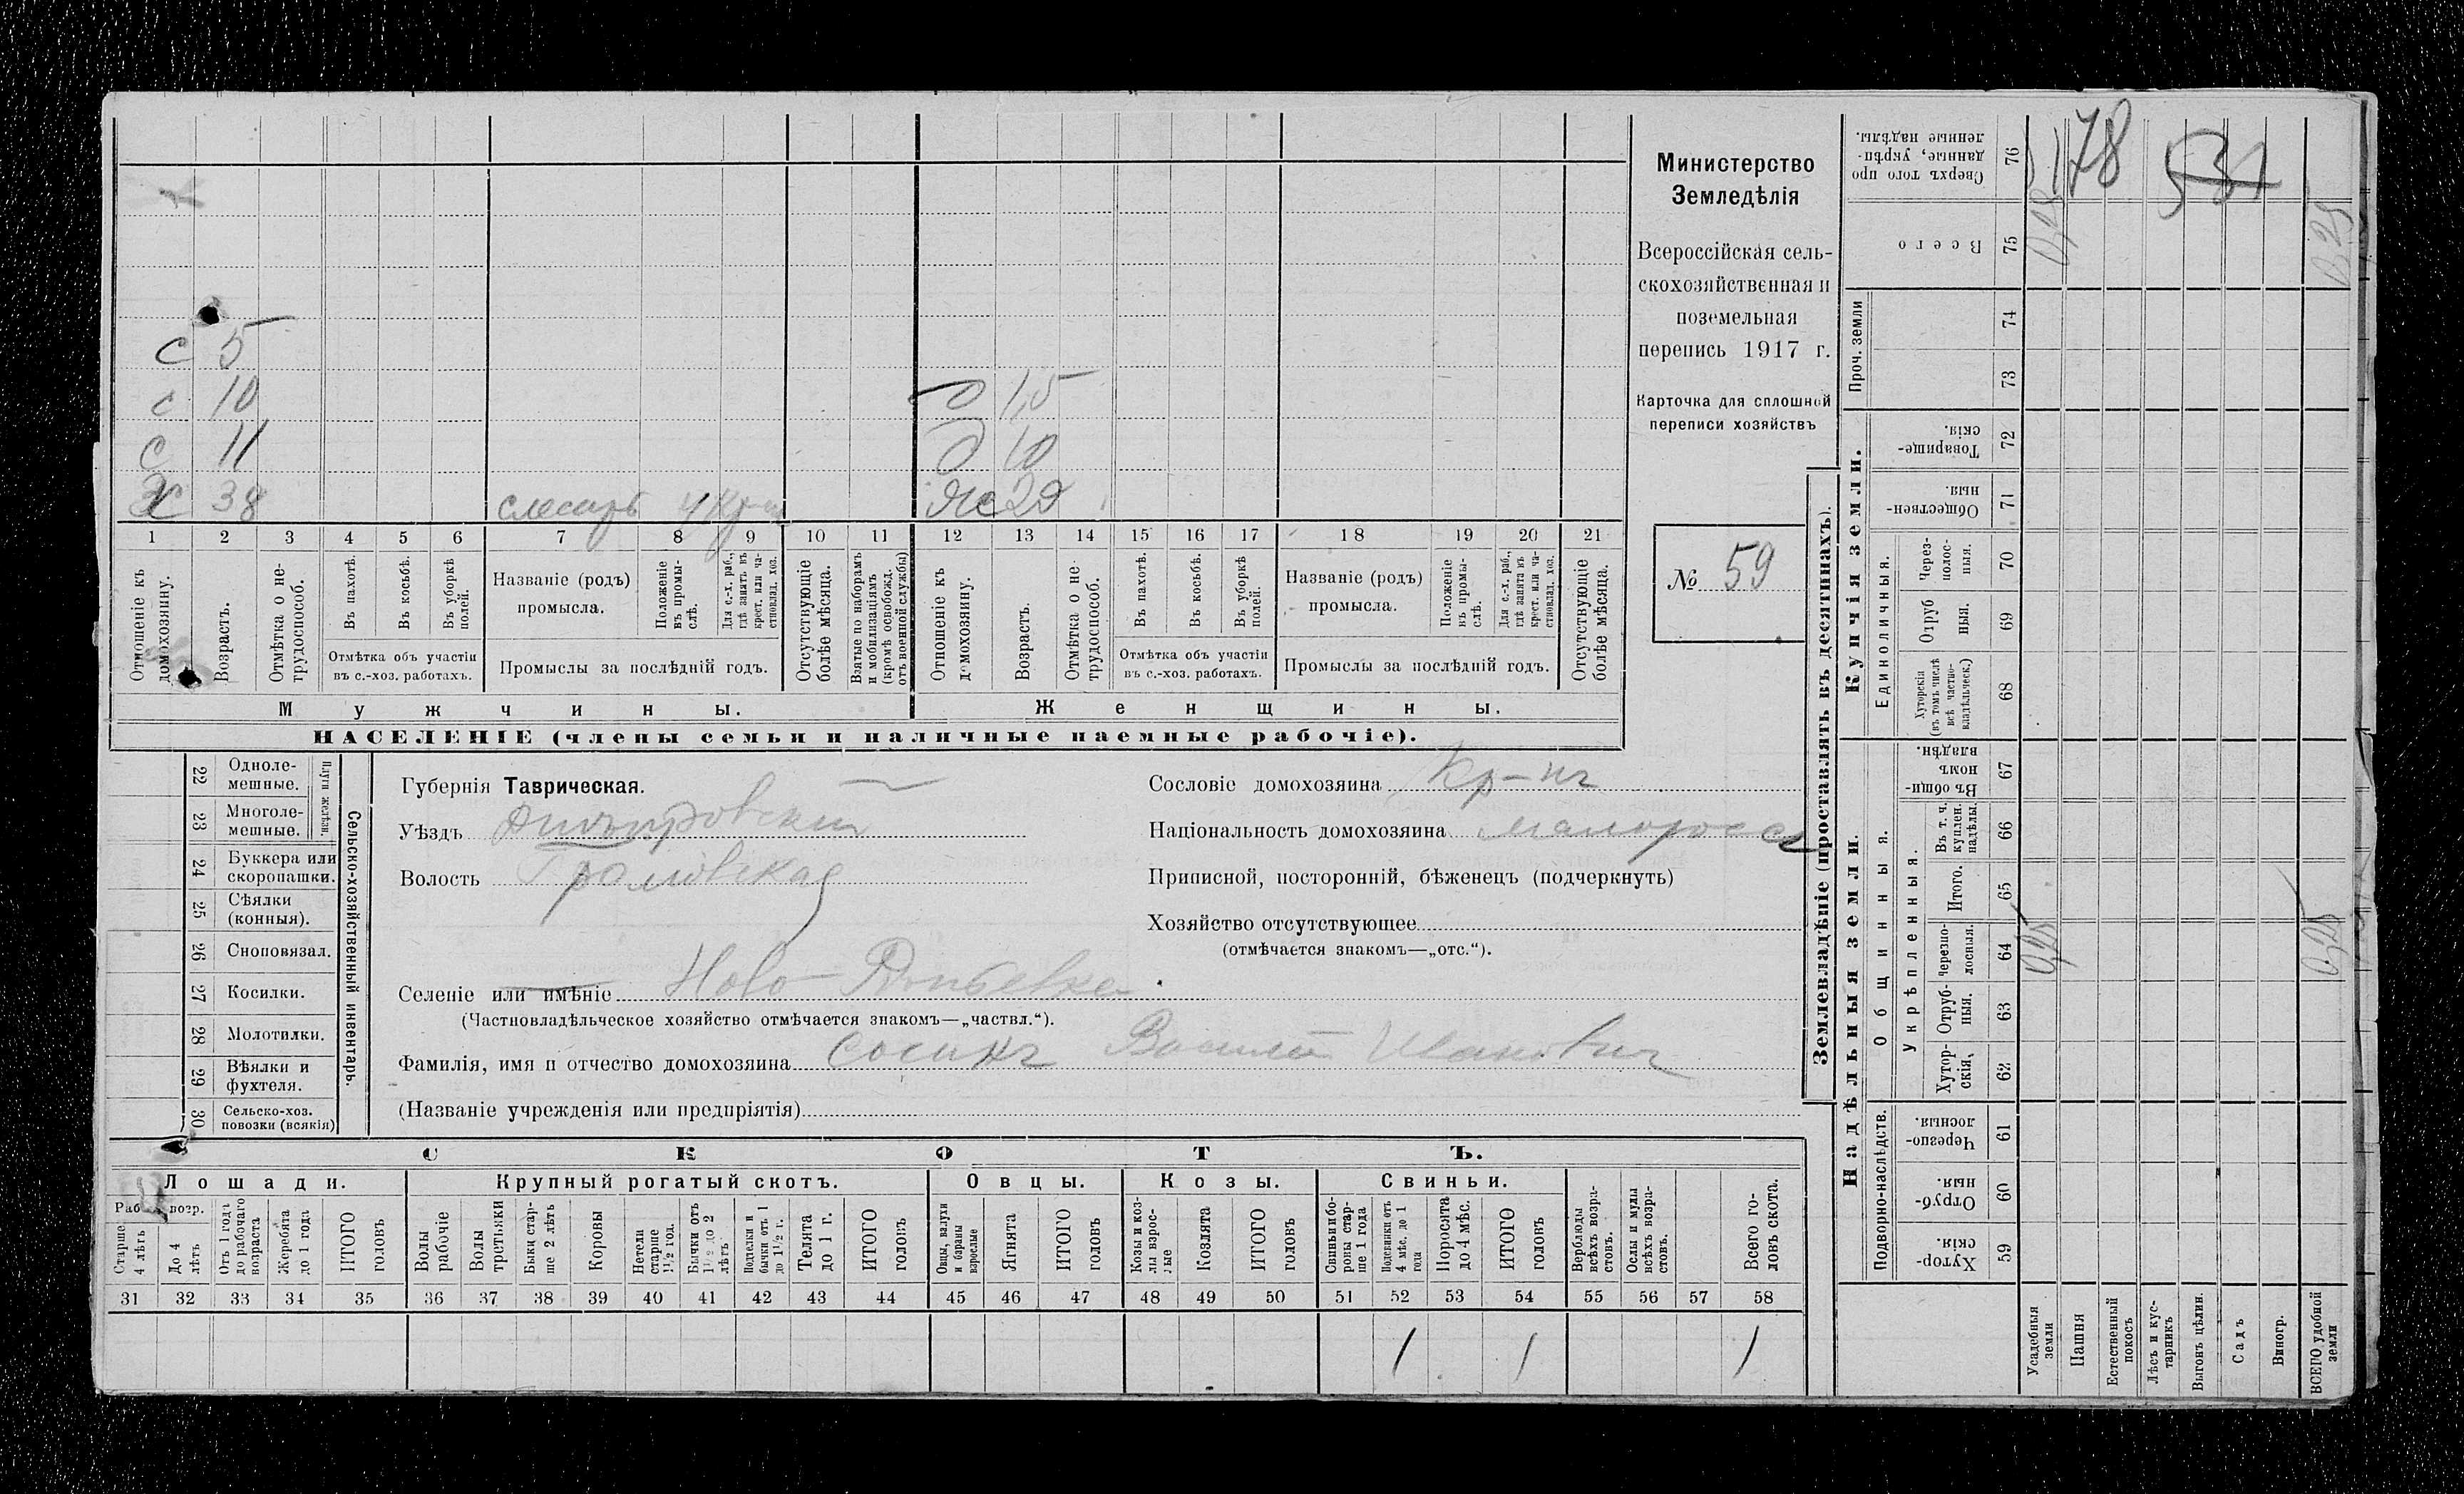 Министерство
Земледѣлія
Всероссійская сель-
скохозяйственная и
поземельная
перепись 1917 г.
Карточка для сплошной
переписи хозяйствъ
№ 59
178
531
с 5
с 10
с 11
Х 38 слесарь
д 1,5
д 10
Ж 29
1 2 3 4 5 6 7 8 9 10 11 12 13 14 15 16 17 18 19 20 21
Отношеніе къ домохозяину.
Возрастъ.
Отмѣтка о не-трудоспособ.
Въ пахотѣ.
Въ косьбѣ.
Въ уборкѣ полей.
Отмѣтка объ участіи
въ с.-хоз. работахъ.
Названіе (родъ)
промысла.
Положеніе въ промы-слѣ.
Для с.-х. раб., гдѣ занятъ въ крест. или ча-стновлад. хоз.
Промыслы за послѣдній годъ.
Отсутствующіе болѣе мѣсяца.
Взятые по наборамъ и мобилизаціямъ (кромѣ освобожд. отъ военной службы)
Отношеніе къ домохозяину.
Возрастъ.
Отмѣтка о не-трудоспособ.
Въ пахотѣ.
Въ косьбѣ.
Въ уборкѣ полей.
Отмѣтка объ участіи
въ с.-хоз. работахъ.
Названіе (родъ)
промысла.
Положеніе въ промы-слѣ.
Для с.-х. раб., гдѣ занята въ крест. или ча-стновлад. хоз.
Промыслы за послѣдній годъ.
Отсутствующіе болѣе мѣсяца.
Мужчины.
Женщины.
НАСЕЛЕНІЕ (члены семьи и наличные наемные рабочіе).
22 Одноле-мешные.
23 Многоле-мешные.
Плуги желѣзн.
24 Буккера или скоропашки.
25 Сѣялки (конныя).
26 Сноповязал.
27 Косилки.
28 Молотилки.
29 Вѣялки и фухтеля.
30 Сельско-хоз. повозки (всякія)
Сельско-хозяйственный инвентарь.
Губернія Таврическая.
Уѣздъ Днѣпровскій
Волость Громовская
Селеніе или имѣніе Ново-
(Частновладѣльческое хозяйство отмѣчается знакомъ—„частвл.“).
Фамилія, имя и отчество домохозяина Сосинъ Василій Ивановичъ
(Названіе учрежденія или предпріятія)
Сословіе домохозяина Кр-нъ
Національность домохозяина малороссъ
Приписной, посторонній, бѣженецъ (подчеркнуть)
Хозяйство отсутствующее
(отмѣчается знакомъ—„отс.“).
СКОТЪ.
Лошади.
Крупный рогатый скотъ.
Овцы.
Козы.
Свиньи.
Раб. возр.
Старше 4 лѣтъ
До 4 лѣтъ
Отъ 1 года до рабочаго возраста
Жеребята до 1 года
ИТОГО головъ
Волы рабочіе
Волы третьяки
Быки стар-ше 2 лѣтъ
Коровы
Нетели старше 1½ год.
Бычки отъ 1½ до 2 лѣтъ
Подтелки и бычки отъ 1 до 1½ г.
Телята до 1 г.
ИТОГО головъ
Овцы, валухи и бараны взрослые
Ягнята
ИТОГО головъ
Козы и коз-лы взрос-лые
Козлята
ИТОГО головъ
Свиньи и бо-ровы стар-ше 1 года
Подсвинки отъ 4 мѣс. до 1 года
Поросята до 4 мѣс.
ИТОГО головъ
Верблюды всѣхъ возра-стовъ.
Ослы и мулы всѣхъ возра-стовъ.
Всего го-ловъ скота.
31 32 33 34 35 36 37 38 39 40 41 42 43 44 45 46 47 48 49 50 51 52 53 54 55 56 57 58
1 1 1
Землевладѣніе (проставлять въ десятинахъ).
Надѣльныя земли.
Купчія земли.
Подворно-наслѣдств.
Общинныя.
Укрѣпленныя.
Единоличныя.
Проч. земли
59 Хутор-скія.
60 Отруб-ныя.
61 Черезпо-лосныя.
62 Хутор-скія.
63 Отруб-ныя.
64 Черезпо-лосныя.
65 Итого.
66 Въ т. ч. куплен. надѣлы.
67 Въ общи-номъ владѣн.
68 Хуторскія (въ томъ числѣ всѣ частно-владѣльческ.)
69 Отруб ныя.
70 Через-полос-ныя.
71 Обществен-ныя.
72 Товарище-скія.
73
74
75 Всего
76 Сверхъ того про данные, укрѣп-ленные надѣлы.
Усадебныя земли
Пашня
Естественный покосъ
Лѣсъ и кус-тарникъ
Выгонъ цѣлин.
Садъ
Виногр.
ВСЕГО удобной земли
0,25
0,25
0,25
0,25